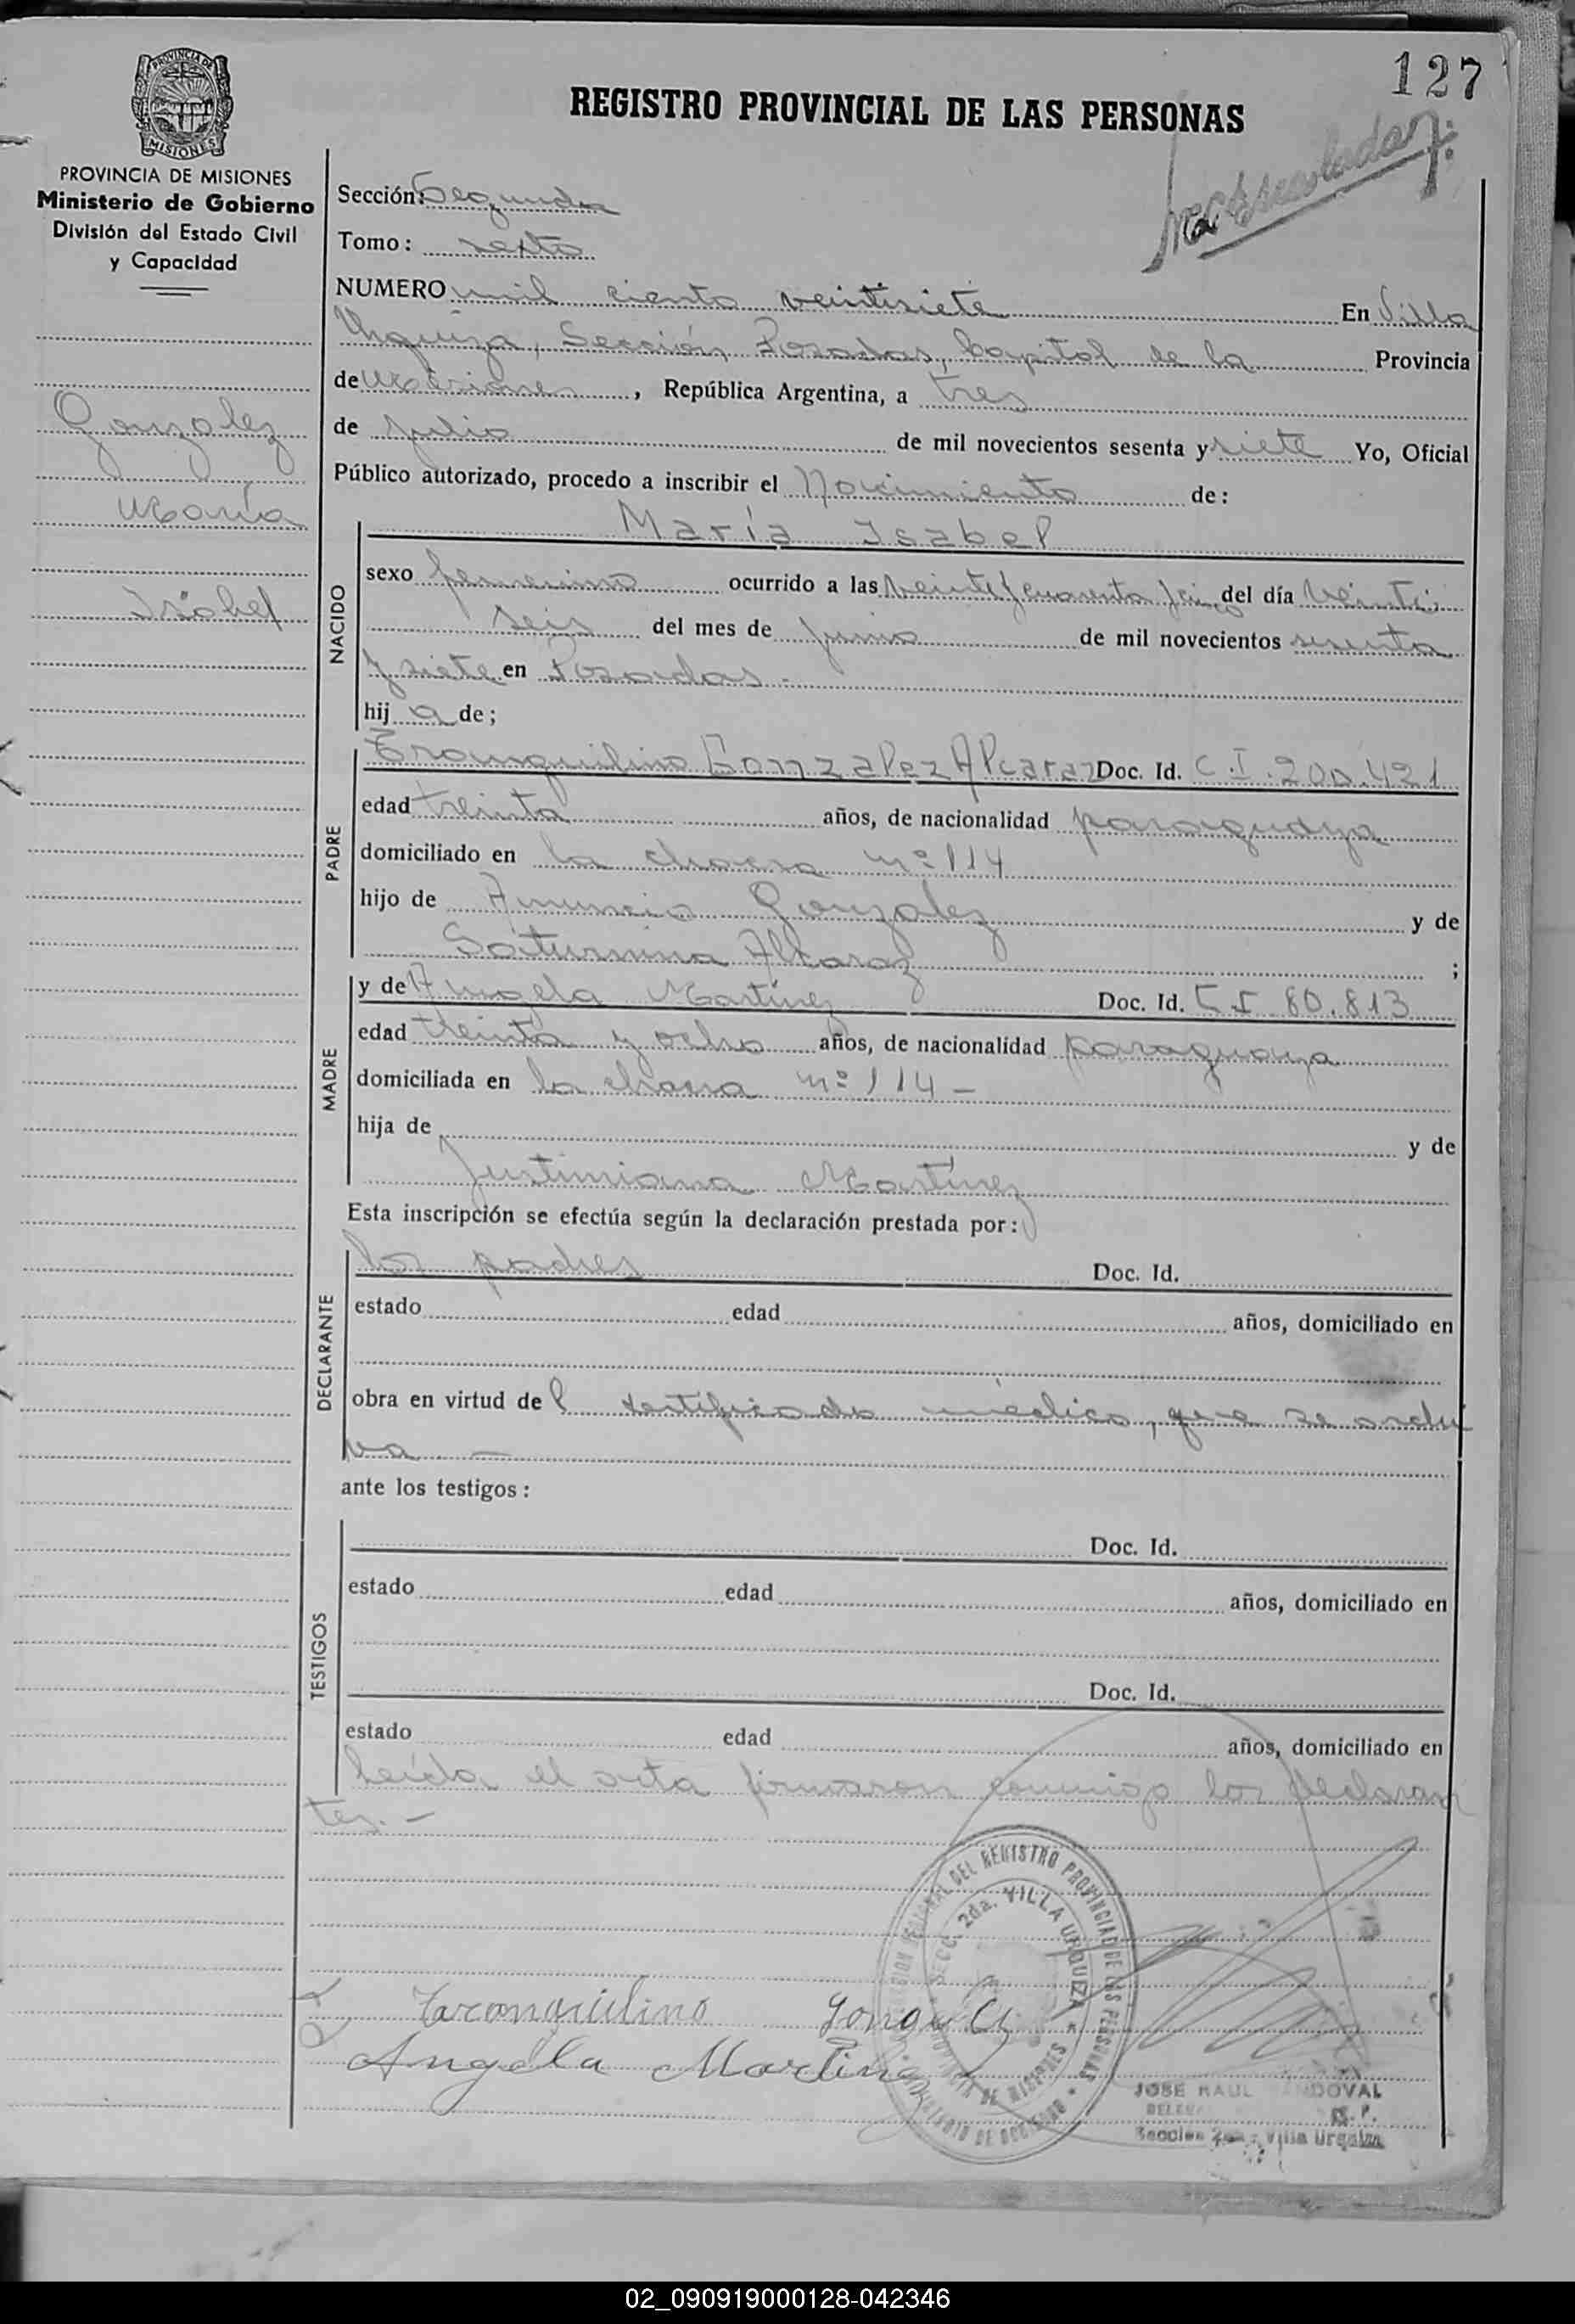 127
REGISTRO PROVINCIAL DE LAS PERSONAS
PROVINCIA DE MISIONES
Ministerio de Gobierno
División del Estado Civil
y Capacidad
Gonzalez
María
Isabel
Sección: Segunda
Tomo: sexto
NUMERO mil ciento veintisiete En Villa
Urquiza, Sección Posadas, Capital de la Provincia
de Misiones, República Argentina, a tres
de julio de mil novecientos sesenta y siete Yo, Oficial
Público autorizado, procedo a inscribir el Nacimiento de:
María Isabel
NACIDO
sexo femenino ocurrido a las veinte y cuarenta y cinco del día veinti
seis del mes de junio de mil novecientos sesenta
y siete en Posadas.-
hij a de;
PADRE
Tranquilino Gonzalez Alcaraz Doc. Id. C.I. 200.421
edad treinta años, de nacionalidad paraguaya
domiciliado en la chacra nº 114
hijo de Anuncio Gonzalez y de
Saturnina Alcaraz ;
MADRE
y de Angela Martínez Doc. Id. C I 80.813
edad treinta y ocho años, de nacionalidad paraguaya
domiciliada en la chacra nº 114 -
hija de y de
Justiniana Martínez
Esta inscripción se efectúa según la declaración prestada por:
DECLARANTE
los padres Doc. Id.
estado edad años, domiciliado en
obra en virtud de l certificado médico, que se archi
va. -
ante los testigos:
TESTIGOS
Doc. Id.
estado edad años, domiciliado en
Doc. Id.
estado edad años, domiciliado en
Leída el acta firmaron conmigo los declaran
tes. -
REGISTRO PROVINCIAL DE LAS PERSONAS
SECC. 2da. VILLA URQUIZA
PROVINCIA DE MISIONES
Tranquilino
Angela Martinez
JOSE RAUL
Sección 2da - Villa Urquiza
02_090919000128-042346